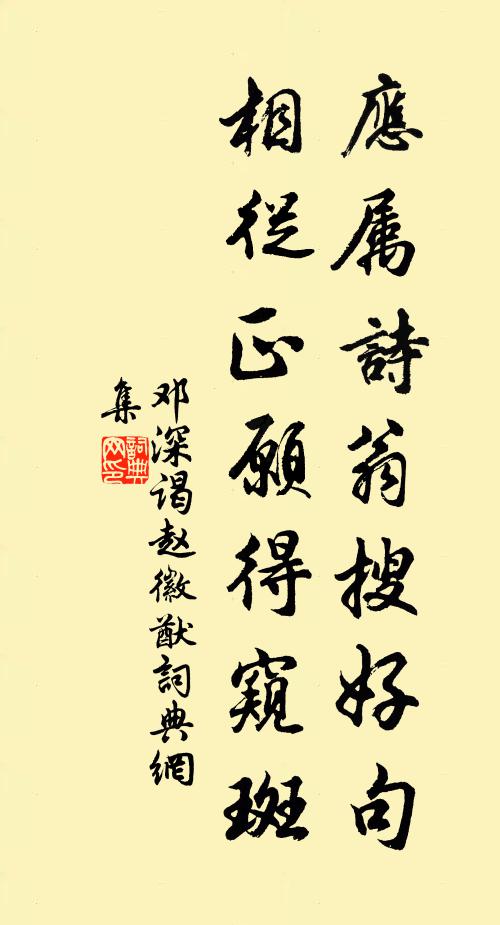 應属詩翁搜好句
相從正願得窺斑
邓深谒赵徽猷詞典網
集
詞典
网印